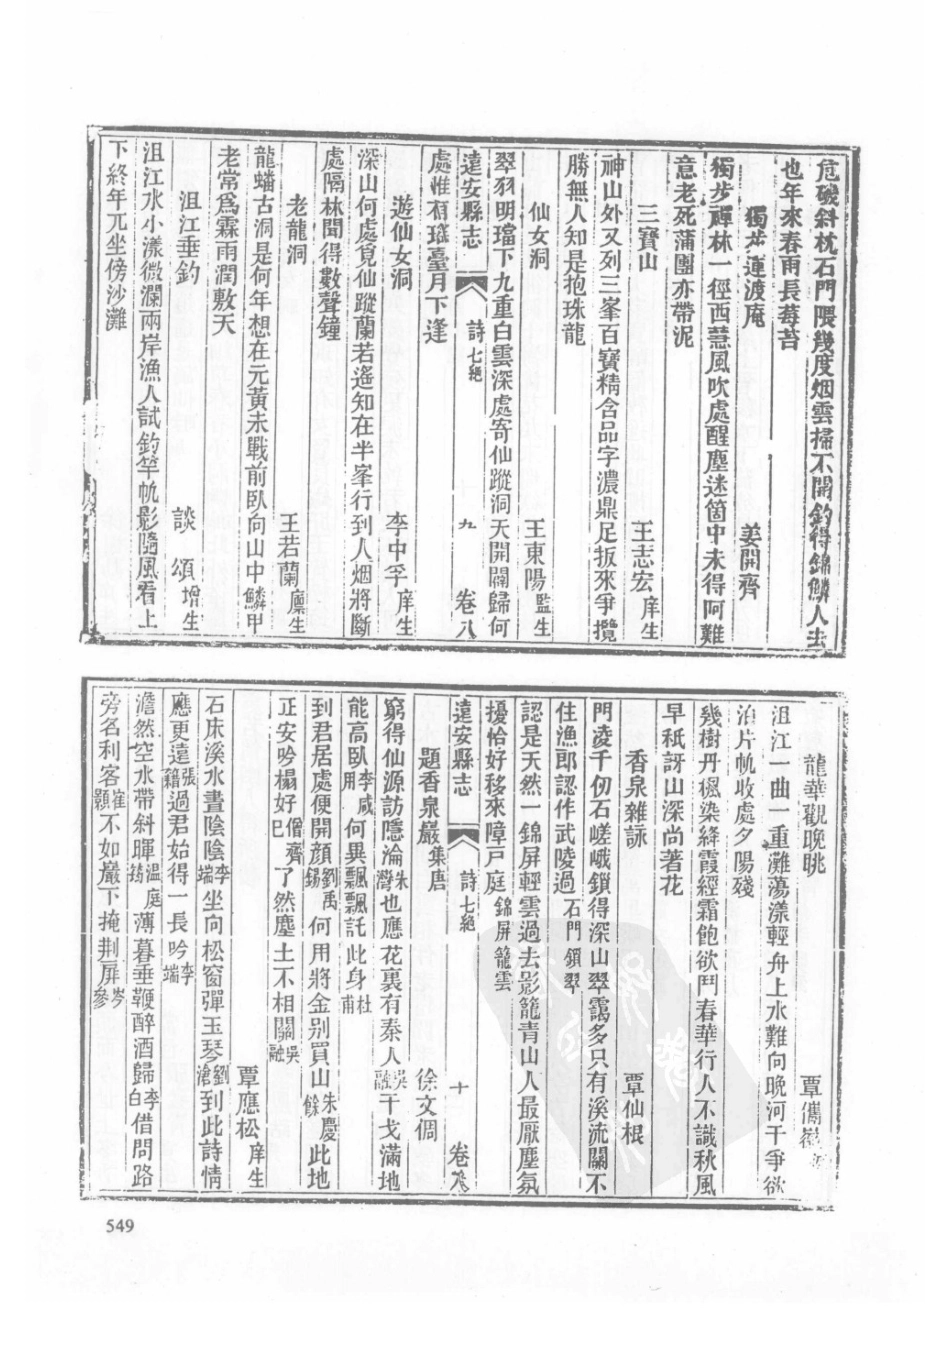 危磯斜枕石門隈幾度烟雲掃不開釣得錦鱗人去
也年來春雨長莓苔
獨步蓮渡庵 姜開齊
獨步禪林一徑西慧風吹處醒塵迷箇中未得阿難
意老死蒲團亦帶泥
三寶山 王志宏庠生
神山外又列三峯百寶精含品字濃鼎足扳來爭攬
勝無人知是抱珠龍
仙女洞 王東陽監生
翠羽明璫下九重白雲深處寄仙蹤洞天開闢歸何
遠安縣志 詩七絶 九 卷八
處惟有瑤臺月下逢
遊仙女洞 李中孚庠生
深山何處覓仙蹤蘭若遙知在半峯行到人烟將斷
處隔林聞得數聲鐘
老龍洞 王若蘭廩生
龍蟠古洞是何年想在元黃未戰前臥向山中鱗甲
老常爲霖雨潤敷天
沮江垂釣 談頌增生
沮江水小漾微瀾兩岸漁人試釣竿帆影隨風看上
下終年兀坐傍沙灘
龍華觀晚眺 覃儁
沮江一曲一重灘蕩漾輕舟上水難向晚河干爭欲
泊片帆收處夕陽殘
幾樹丹楓染絳霞經霜飽欲鬥春華行人不識秋風
早秖訝山深尚著花
香泉雜詠 覃仙根
門凌千仞石嵯峨鎖得深山翠靄多只有溪流關不
住漁郎認作武陵過石門鎖翠
認是天然一錦屏輕雲過去影籠青山人最厭塵氛
擾恰好移來障戸庭錦屏籠雲
遠安縣志 詩七絶 十 卷八
題香泉巖集唐 徐文倜
窮得仙源訪隱淪朱灣也應花裏有秦人吳融干戈滿地
能高臥李咸用何異飄飄託此身杜甫
到君居處便開顏劉禹錫何用將金别買山朱慶餘此地
正安吟榻好僧齊巳了然塵土不相關吳融
覃應松庠生
石床溪水晝陰陰李端坐向松窗彈玉琴劉滄到此詩情
應更遠張籍過君始得一長吟李端
澹然空水帶斜暉溫庭筠薄暮垂鞭醉酒歸李白借問路
旁名利客崔顥不如巖下掩荆扉岑參
549